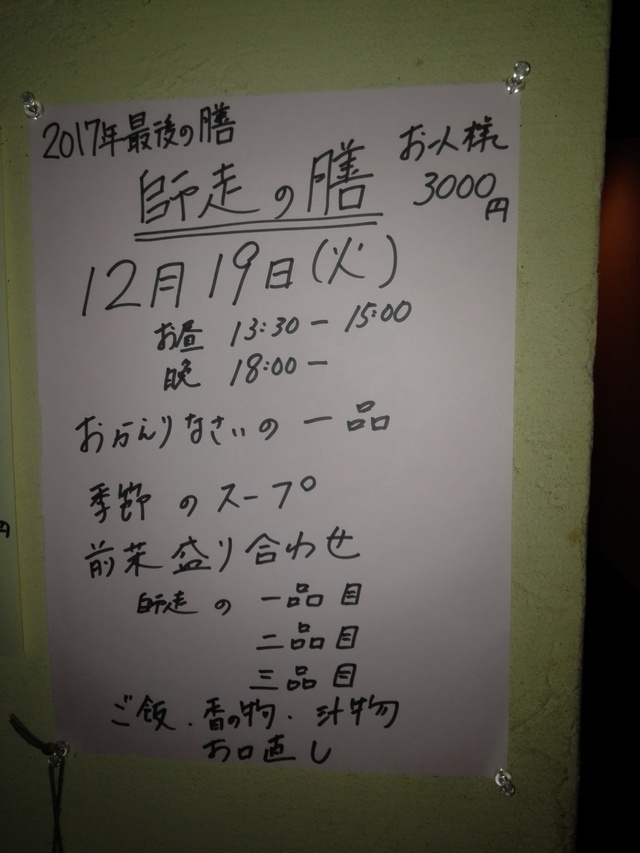 2017年最後の膳
師走の膳
お一人様
3000円
12月19日(火)
お昼 13:30ー15:00
晩 18:00ー
おかえりなさいの一品
季節のスープ
前菜盛り合わせ
師走の一品目
二品目
三品目
ご飯.香の物.汁物
お口直し
円